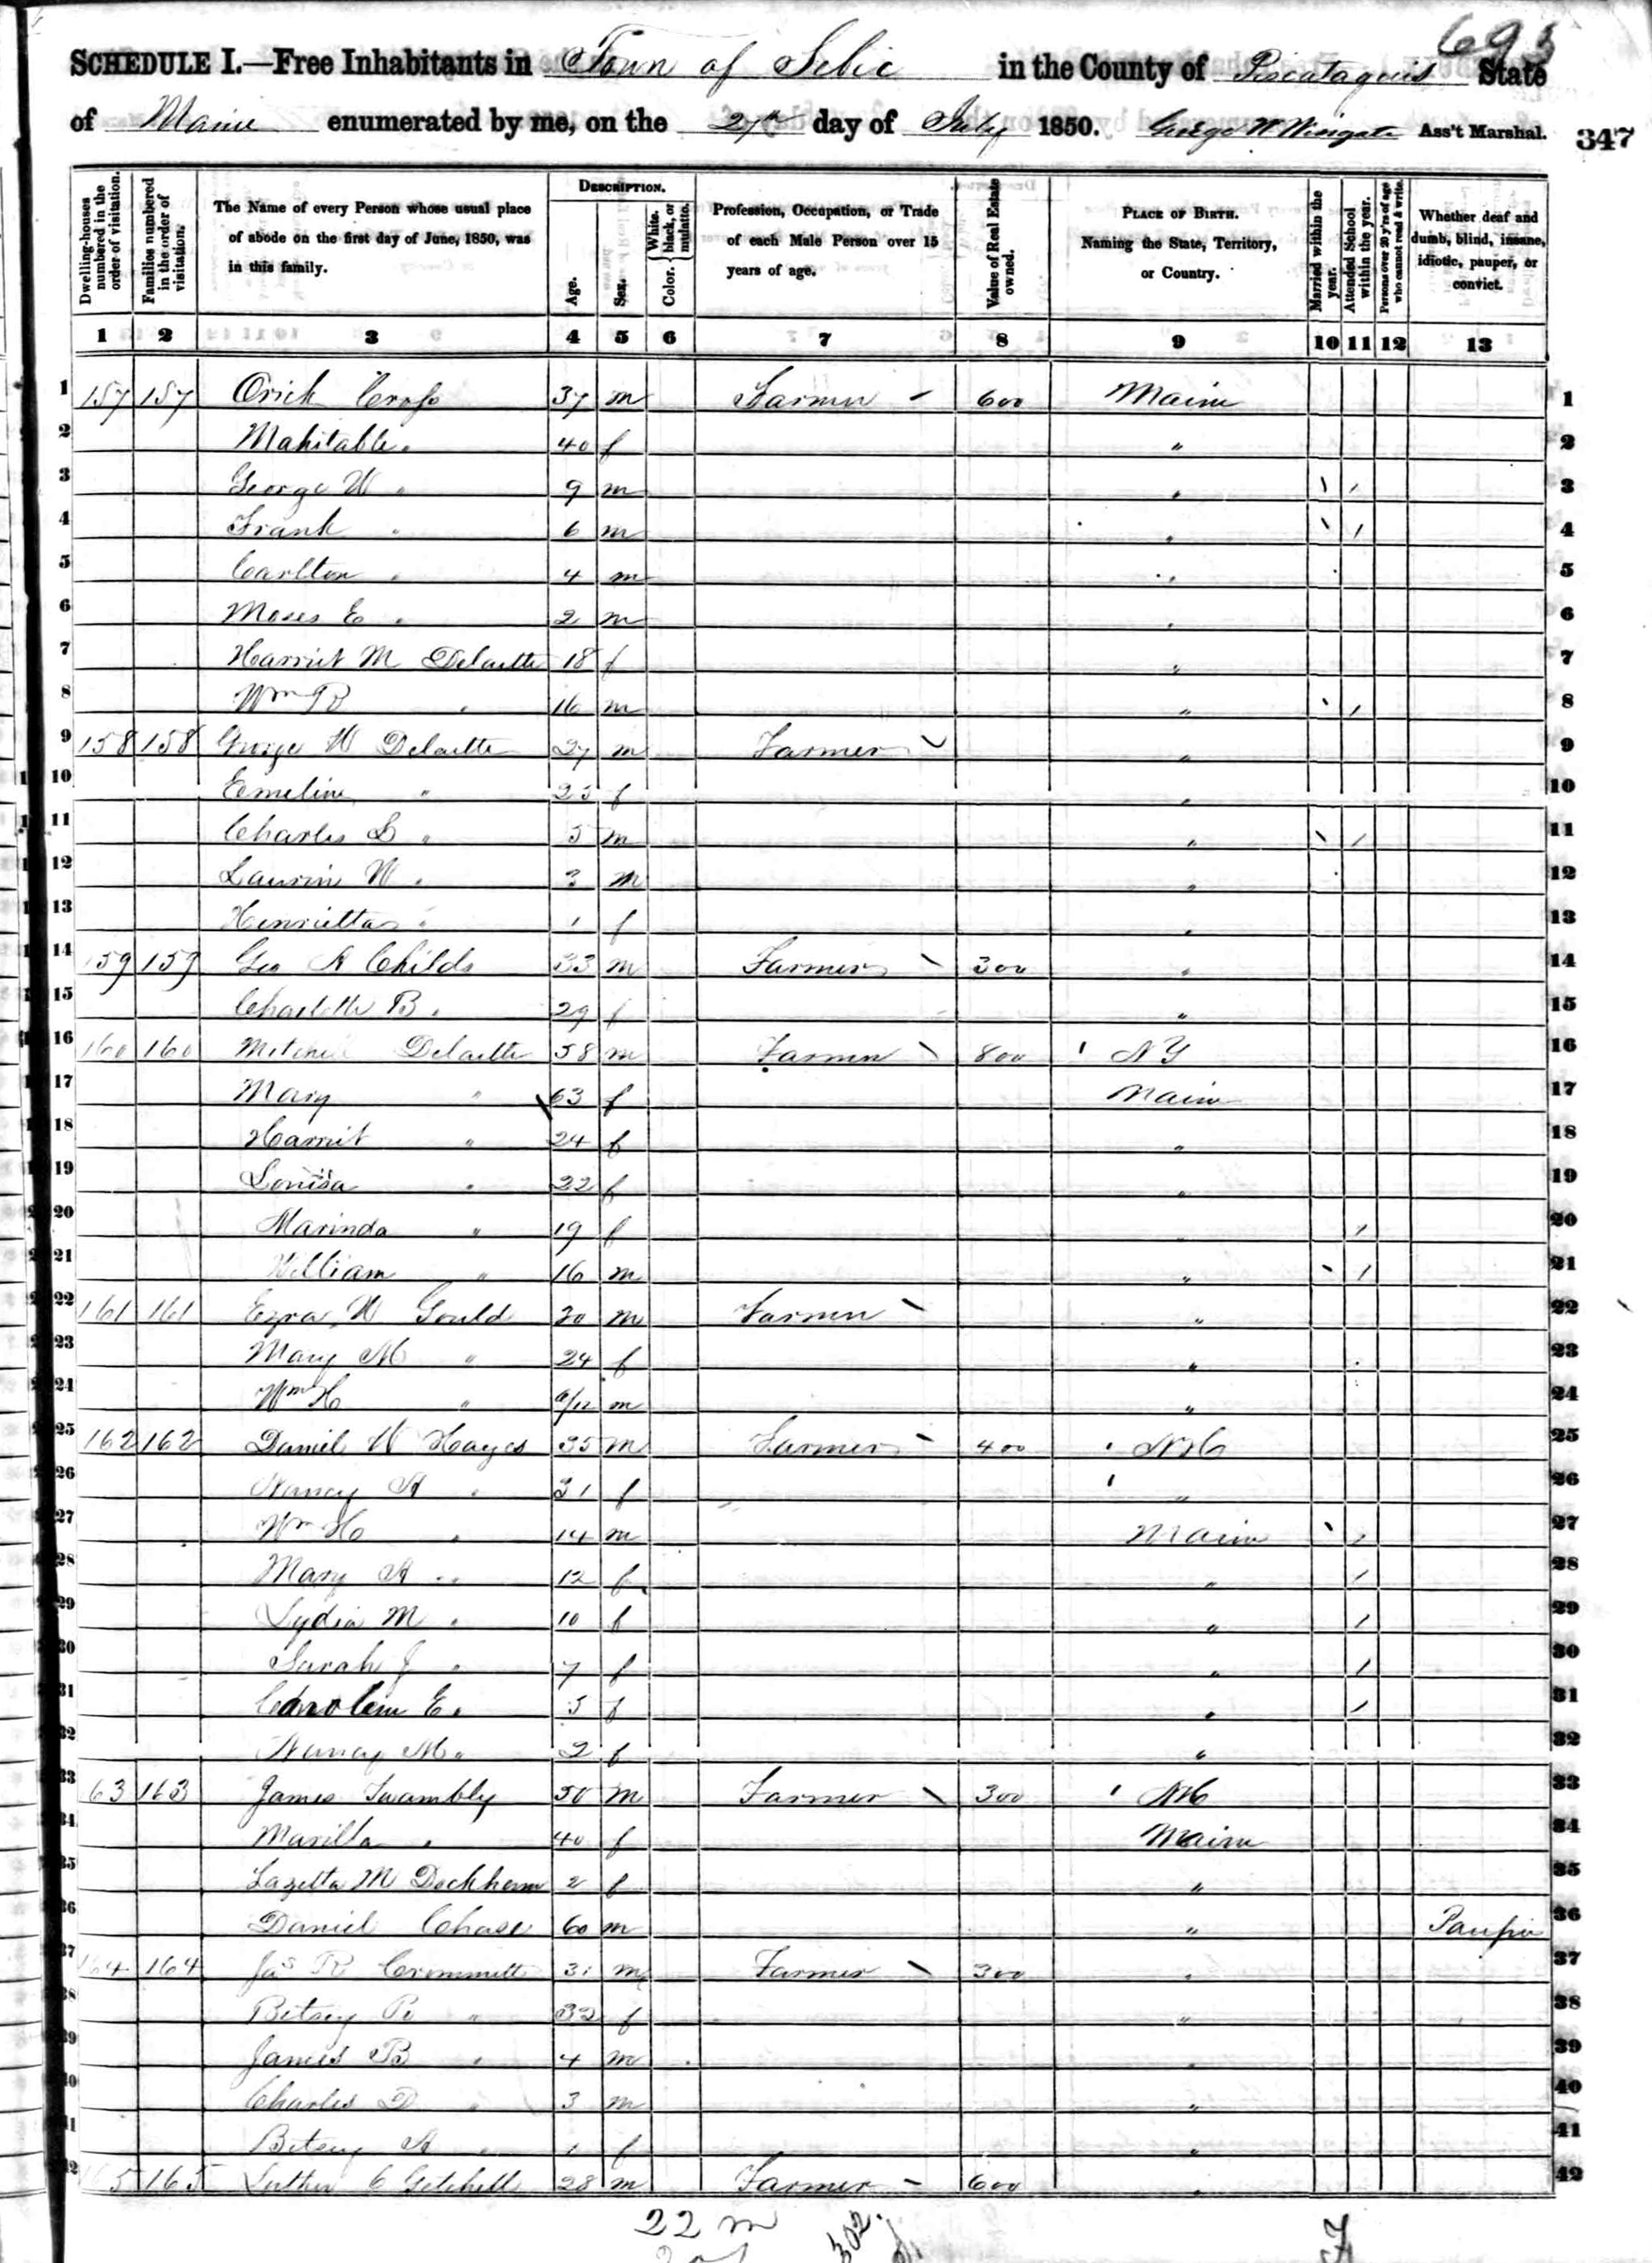 693
SCHEDULE I.—Free Inhabitants in Town of Sebec in the County of Piscataquis State
of Maine enumerated by me, on the 27th day of July 1850. George W Wingate Ass't Marshal. 347
Dwelling-houses numbered in the order of visitation. Families numbered in the order of visitation. The Name of every Person whose usual place of abode on the first day of June, 1850, was in this family. DESCRIPTION. Age. Sex. Color. { White, black, or mulatto. Profession, Occupation, or Trade of each Male Person over 15 years of age. Value of Real Estate owned. PLACE OF BIRTH. Naming the State, Territory, or Country. Married within the year. Attended School within the year. Persons over 20 y'rs of age who cannot read & write. Whether deaf and dumb, blind, insane, idiotic, pauper, or convict.
1 2 3 4 5 6 7 8 9 10 11 12 13
1 157 157 Orich Cross 37 m Farmer - 600 Maine 1
2 Mahitable " 40 f " 2
3 George W " 9 m " \ / 3
4 Frank " 6 m " \ / 4
5 Carlton " 4 m " 5
6 Moses E " 2 m " 6
7 Harriet M Delaitte 18 f " 7
8 Wm B " 16 m " \ / 8
9 158 158 George W Delaitte 27 m Farmer " 9
10 Emeline " 23 f " 10
11 Charles L " 5 m " \ / 11
12 Laurin W " 3 m " 12
13 Henrietta " 1 f " 13
14 159 159 Geo A Childs 33 m Farmer \ 300 " 14
15 Charlotte B " 29 f " 15
16 160 160 Delaitte 58 m Farmer \ 800 NY 16
17 Mary " 63 f Maine 17
18 Harriet " 24 f " 18
19 Louisa " 22 f " 19
20 Marinda " 19 f " / 20
21 William " 16 m " \ / 21
22 161 161 Ezra W Gould 30 m Farmer \ " 22
23 Mary M " 24 f " 23
24 Wm H " /12 m " 24
25 162 162 Daniel W Hayes 35 m Farmer \ 400 NH 25
26 Nancy A " 31 f " 26
27 Wm H " 14 m Maine \ / 27
28 Mary A " 12 f " / 28
29 Lydia M " 10 f " / 29
30 Sarah J " 7 f " / 30
31 Carolein E " 5 f " / 31
32 Nancy M " 2 f " 32
33 63 163 James Twambly 50 m Farmer \ 300 NH 33
34 Marilla " 40 f Maine 34
35 Lazetta M Dockham 2 f " 35
36 Daniel Chase 60 m " Pauper 36
37 164 164 Jas R Crommett 31 m Farmer \ 300 " 37
38 Betsey " 32 f " 38
39 James B " 4 m " 39
40 Charles D " 3 m " 40
41 Betsey A " 1 f " 41
42 165 165 Luther C Getchell 28 m Farmer - 600 " 42
22 m
302